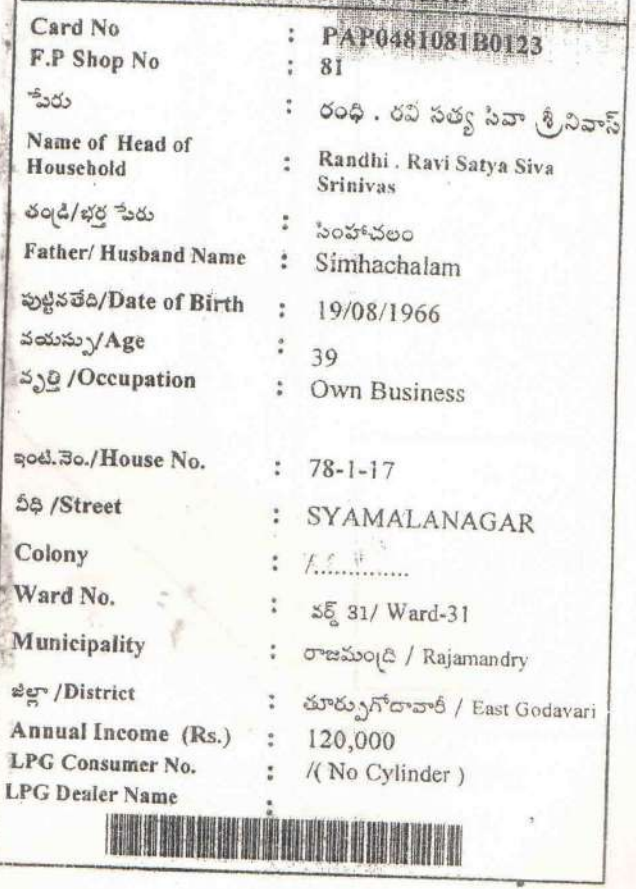 Card No : PAP0481081B0123
F.P Shop No : 81
పేరు : రంధి . రవి సత్య సివా శ్రీనివాస్
Name of Head of
Household : Randhi . Ravi Satya Siva
Srinivas
తండ్రి/భర్త పేరు : సింహాచలం
Father/ Husband Name : Simhachalam
పుట్టినతేది/Date of Birth : 19/08/1966
వయస్సు/Age : 39
వృత్తి /Occupation : Own Business
ఇంటి.నెం./House No. : 78-1-17
వీధి /Street : SYAMALANAGAR
Colony : /..............
Ward No. : వర్డ్ 31/ Ward-31
Municipality : రాజమండ్రి / Rajamandry
జిల్లా /District : తూర్పుగోదావారీ / East Godavari
Annual Income (Rs.) : 120,000
LPG Consumer No. : /( No Cylinder )
LPG Dealer Name :